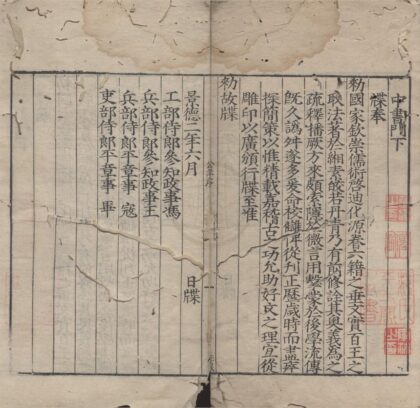 中書門下
牒奉
勑國家欽崇儒術啓迪化源眷六籍之垂文實百王之
取法著於緗素皎若丹青乃有前修詮其奧義爲之
疏釋播厥方來頗索隱於微言用擊蒙於後學流傳
既久譌舛遂多爰命校讎俾從刊正歷歲時而盡瘁
探簡策以惟精載嘉稽古之功允助好文之理宜從
雕印以廣頒行牒至准
勑故牒
景德二年六月　日牒
工部侍郎參知政事馮
兵部侍郎參知政事王
兵部侍郎平章事　寇
吏部侍郎平章事　畢